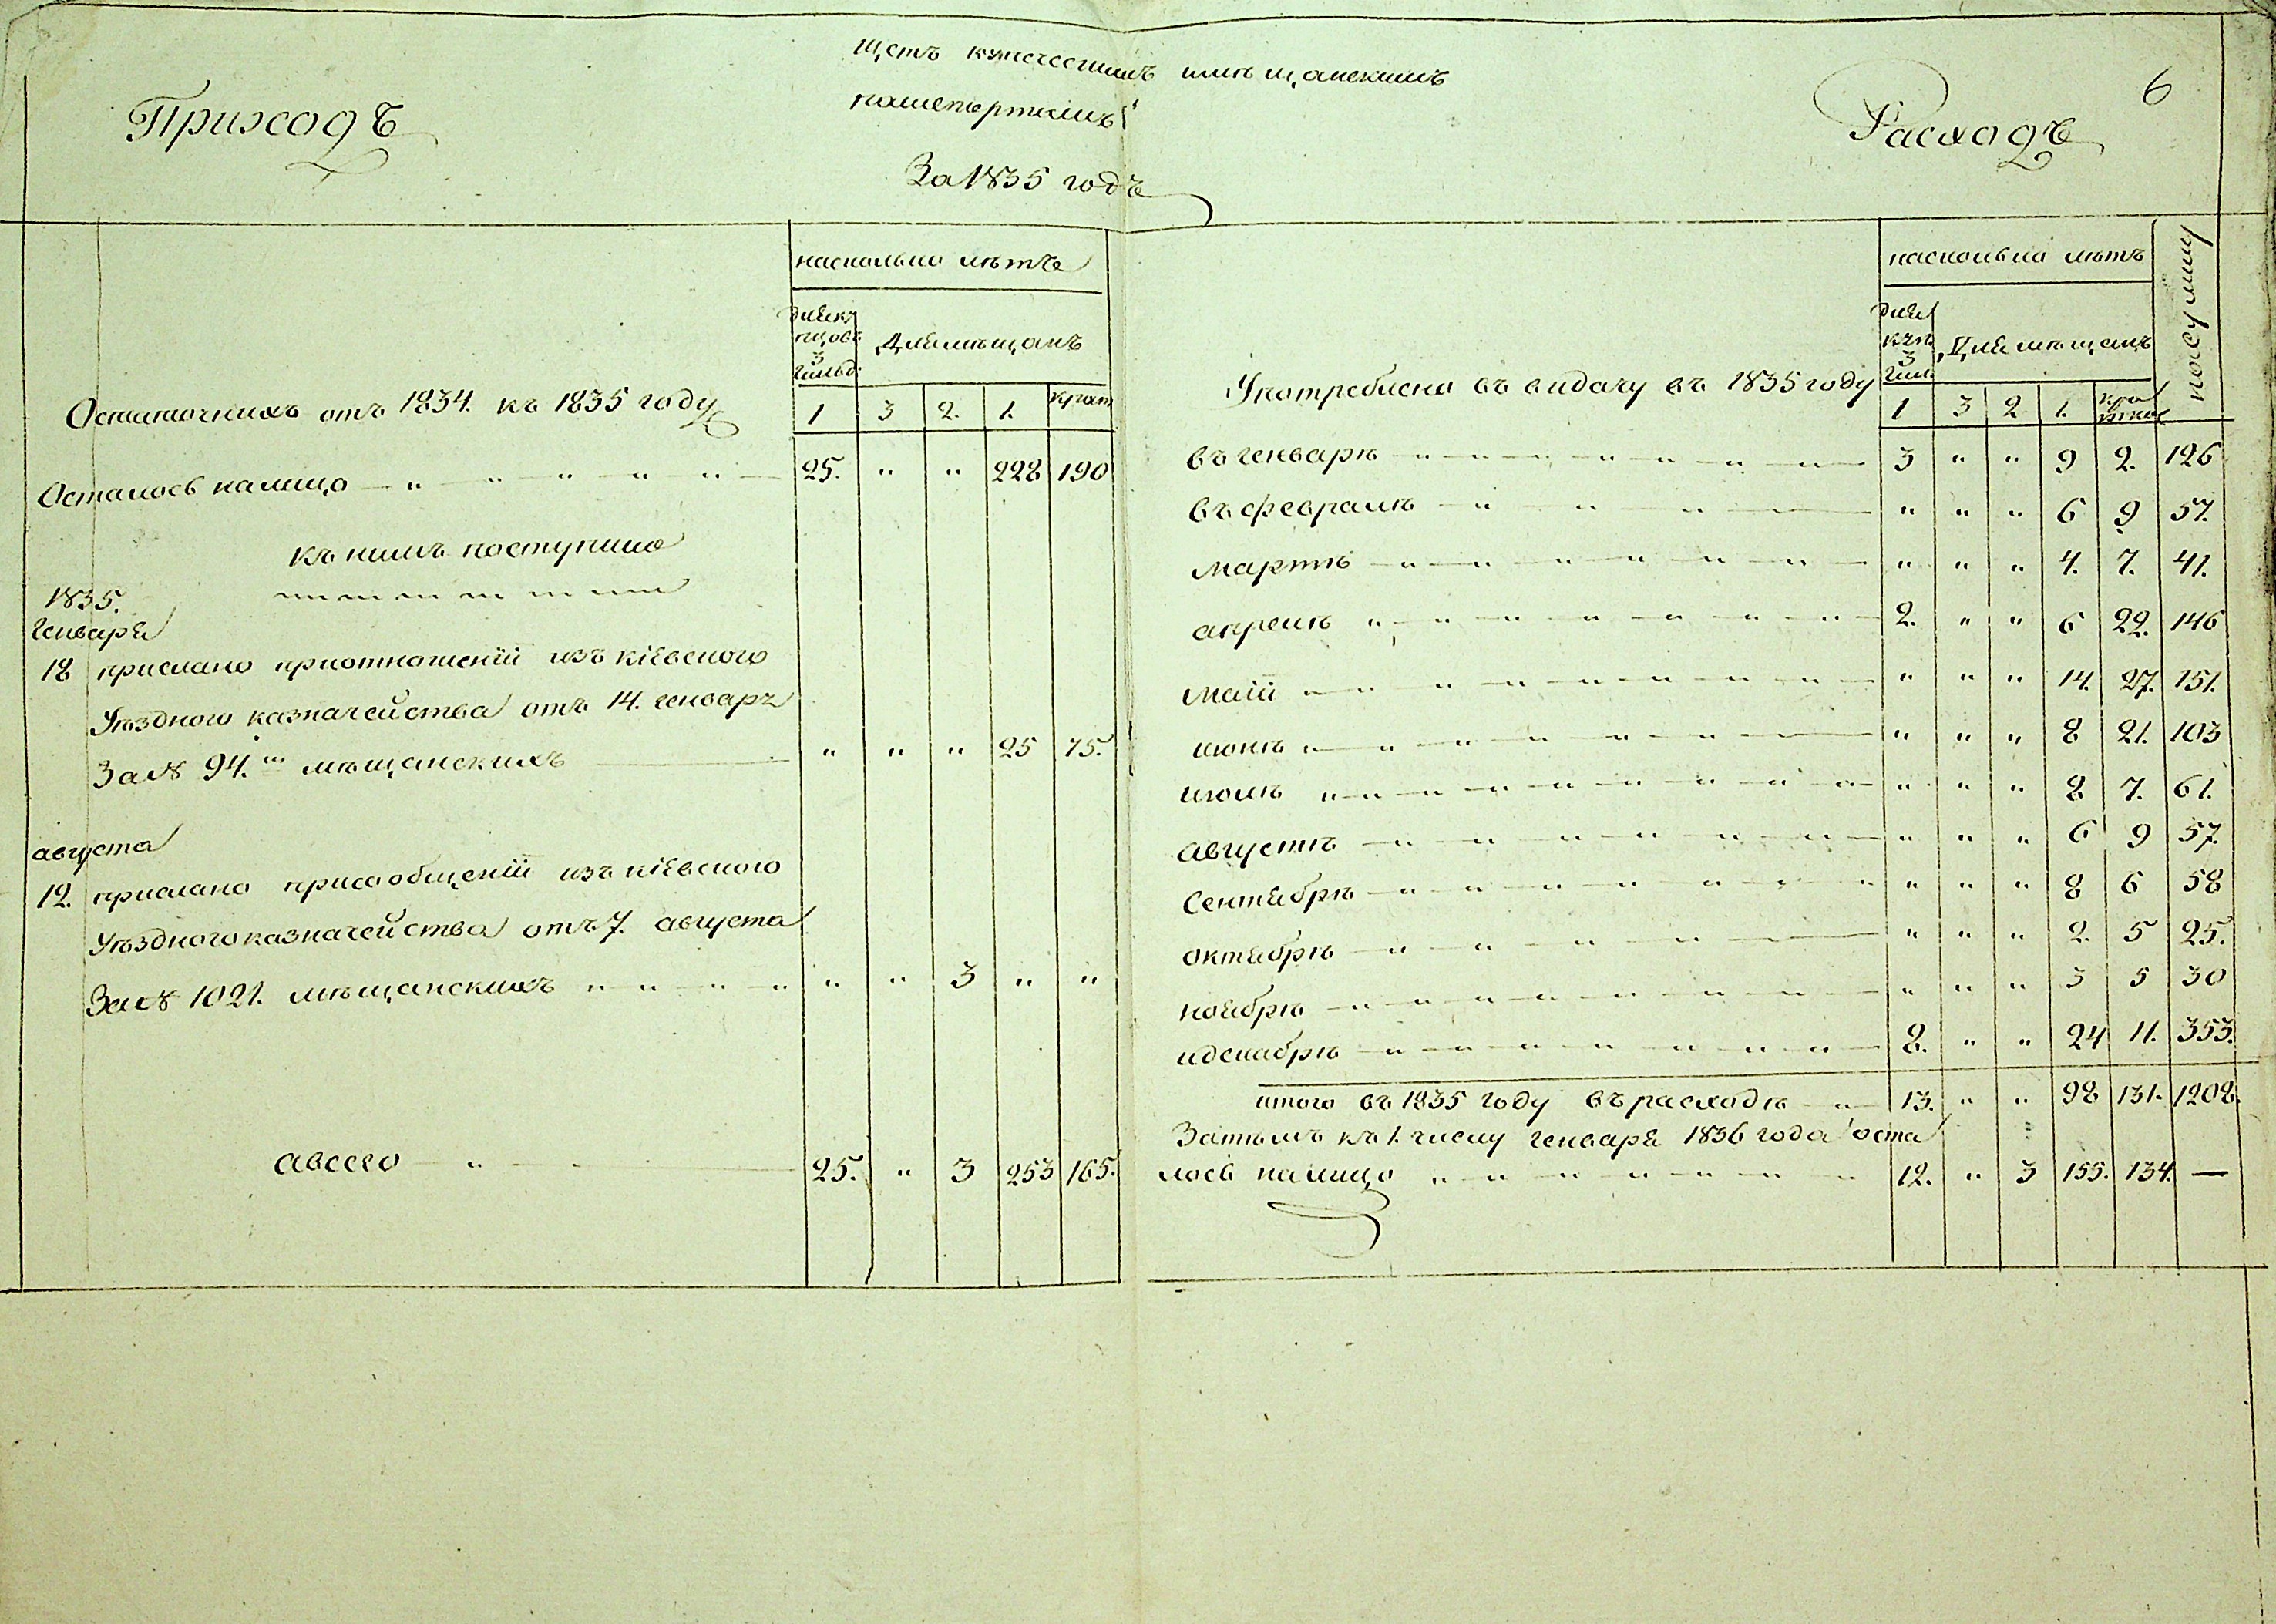 Щетъ купеческимъ имѣщанскимъ
пашепортамъ
За 1835 годъ
Приходъ
насколько лѣтъ
для ку
пцовъ
3
гильд:
Для мѣщанъ
1 3 2. 1. крат
Остаточнихъ отъ 1834. къ 1835 году
Осталось налицо — " — " — " — " — " — 25. " " 228 190
Къ нимъ поступило
1835.
Генваря
18 прислано приотношеніи изъ кіевского
Уѣздного казначейства отъ 14. генвара
За № 94.м мѣщанскихъ — " " " 25 75.
августа
12. прислано присообщеніи изъ кіевского
Уѣздного казначейства отъ 7. августа
За № 1021. мѣщанскихъ " " " " " " 3 " "
авсего — " — 25. " 3 253 165.
6
Расходъ
насколько лѣтъ
для
куп
3
гил.
Для мѣщанъ
на сумму
1 3 2 1. кра
ткое
Употреблено въ видачу въ 1835 году
въ генварѣ — " — 3 " " 9 2. 126
въ февралѣ — " — " " " 6 9 57.
мартѣ — " — " " " 4. 7. 41.
апрелѣ " — " — 2. " " 6 22. 146
маіи — " — " " " 14. 27. 151.
июнѣ " — " — " " " 8 21. 103
июлѣ " — " — " " " 8 7. 61.
августѣ — " — " " " 6 9 57.
Сентябрѣ — " — " " " 8 6 58
октябрѣ — " — " " " 2. 5 25.
ноябрѣ — " — " " " 3 5 30
идекабрѣ — " — 8. " " 24 11. 353.
итого въ 1835 году въ расходѣ — " — 13. " " 98 131. 1208.
Затѣмъ къ 1. числу генваря 1836 года оста
лось налицо " — " — 12. " 3 155. 134. —